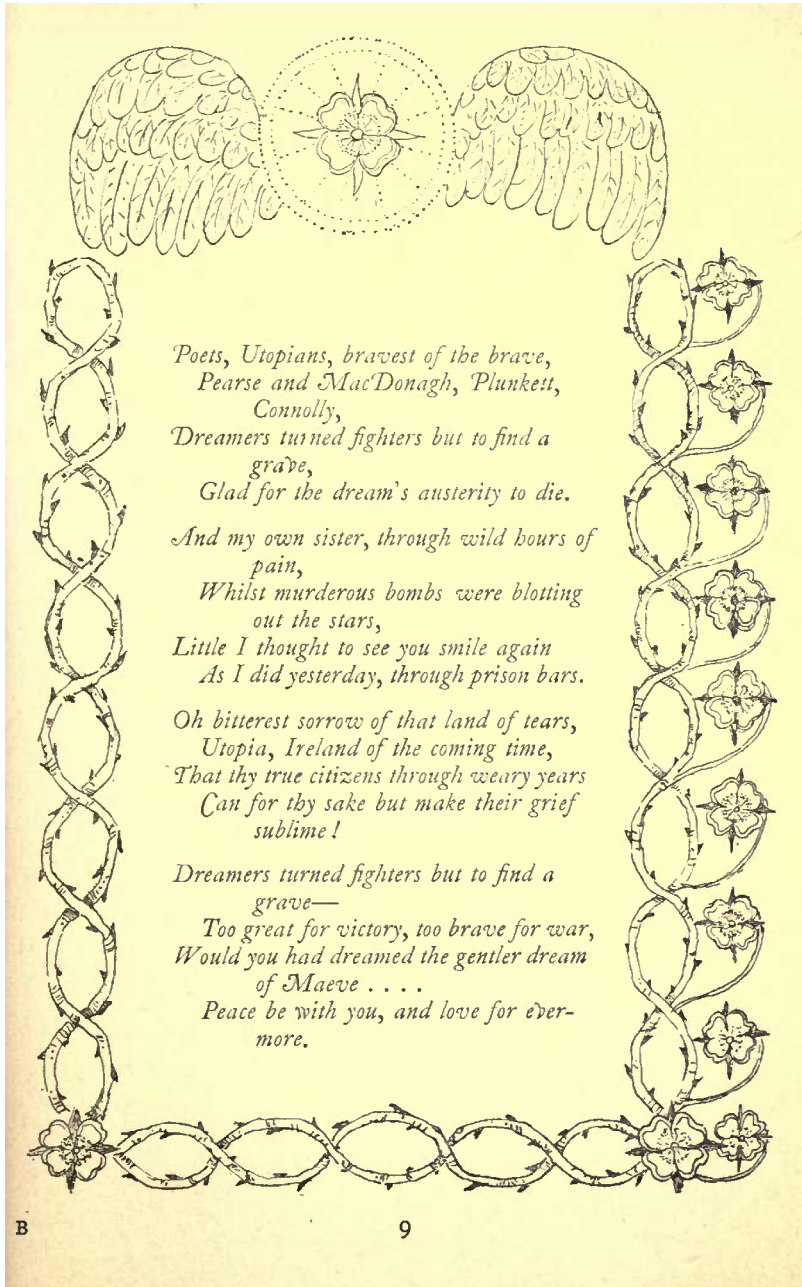 Poets, Utopians, bravest of the brave,
Pearse and MacDonagh, Plunkett,
Connolly,
Dreamers turned fighters but to find a
grave,
Glad for the dream's austerity to die.
And my own sister, through wild hours of
pain,
Whilst murderous bombs were blotting
out the stars,
Little I thought to see you smile again
As I did yesterday, through prison bars.
Oh bitterest sorrow of that land of tears,
Utopia, Ireland of the coming time,
That thy true citizens through weary years
Can for thy sake but make their grief
sublime!
Dreamers turned fighters but to find a
grave—
Too great for victory, too brave for war,
Would you had dreamed the gentler dream
of Maeve . . . .
Peace be with you, and love for ever-
more.
B 9